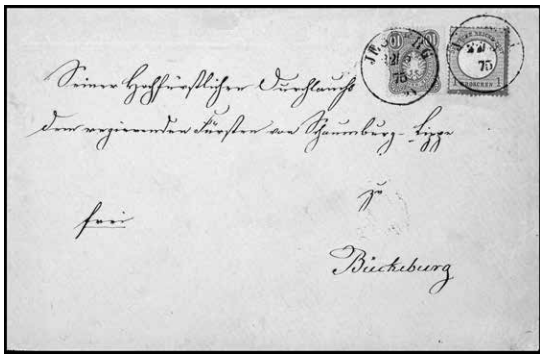 10
1 GROSCHEN 1
75
75
Seiner Hochfürstlichen Durchlaucht
dem regierenden Fürsten von Schaumburg-Lippe
zu
frei
Bückeburg